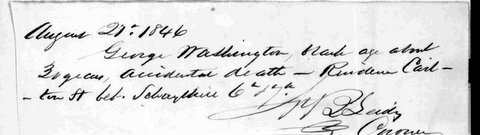 August 21st. 1846
George Washington, black age about
30 years, accidental death – Residence Carl-
ton St bet. Schuylkill 6th & 7th
Coroner